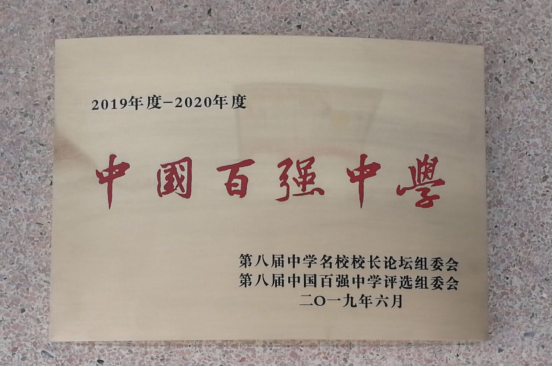 2019年度-2020年度
中國百强中學
第八届中学名校校长论坛组委会
第八届中国百强中学评选组委会
二〇一九年六月